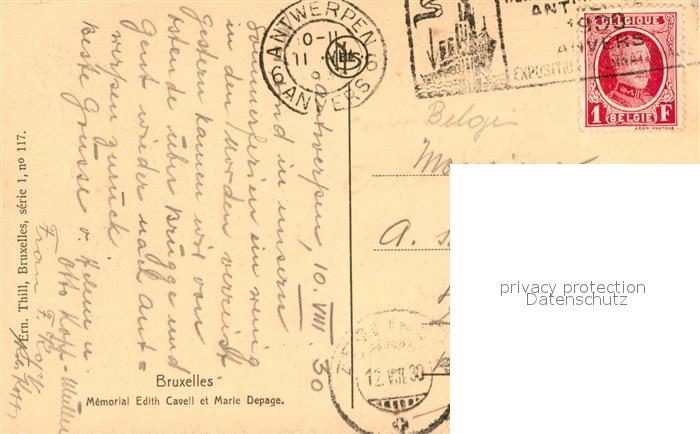 Antwerpen, 10. VIII. 30
Wir sind in unsern
Sommerferien ein wenig
in den Norden verreist
Gestern kamen wir von
Ostende über Brügge und
Gent wieder nach Ant=
werpen zurück.
Beste Grüsse v. Helen u.
Otto Kopp-Müller
Frau F. Kopp
Ern. Thill, Bruxelles, série 1, no 117.
Bruxelles
Mémorial Edith Cavell et Marie Depage.
NELS
ANTWERPEN 6
ANVERS 6
ANTWERPEN
1930
ANVERS
EXPOSITION
BELGIQUE
1 F
BELGIE
Belgien
A.
12.VIII.30
privacy protection
Datenschutz